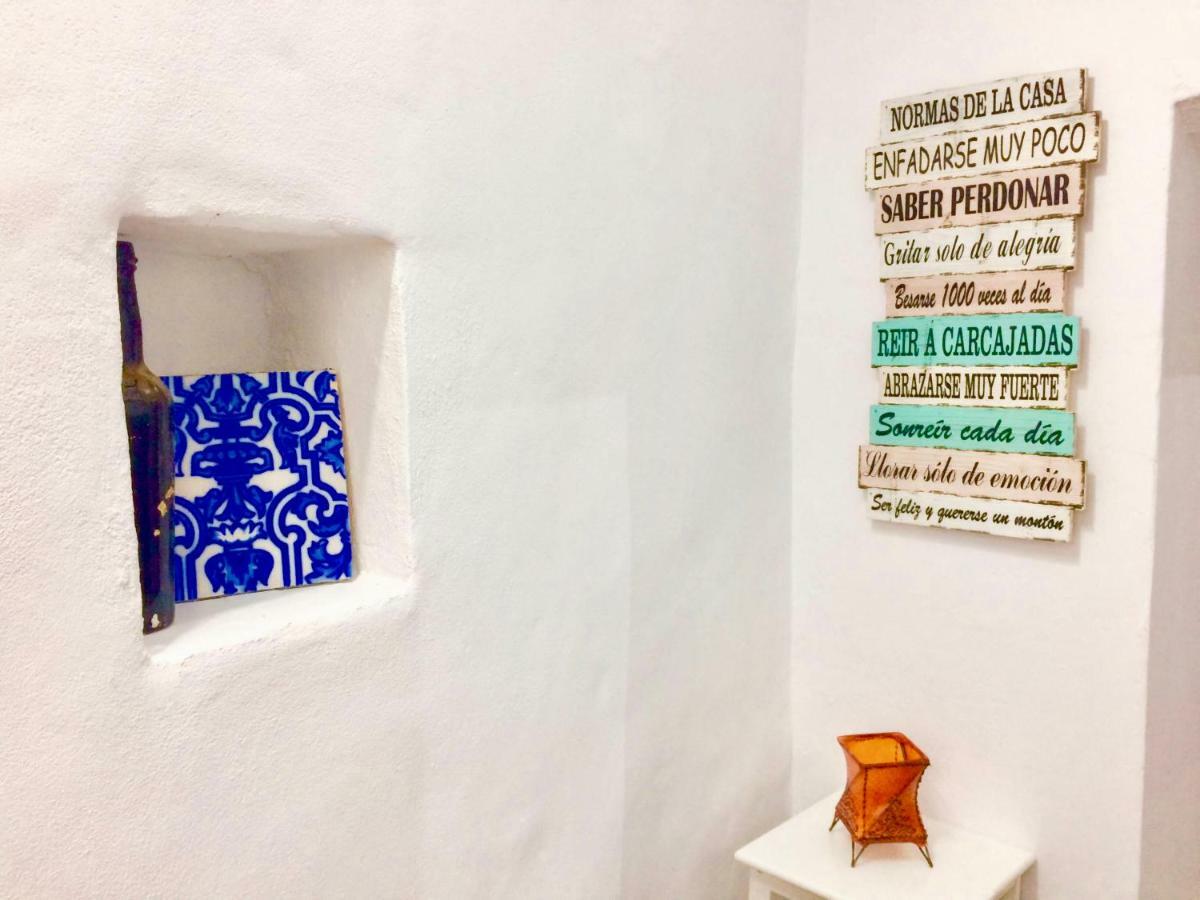 NORMAS DE LA CASA
ENFADARSE MUY POCO
SABER PERDONAR
Gritar solo de alegría
Besarse 1000 veces al día
REIR A CARCAJADAS
ABRAZARSE MUY FUERTE
Sonreír cada día
Llorar sólo de emoción
Ser feliz y quererse un montón